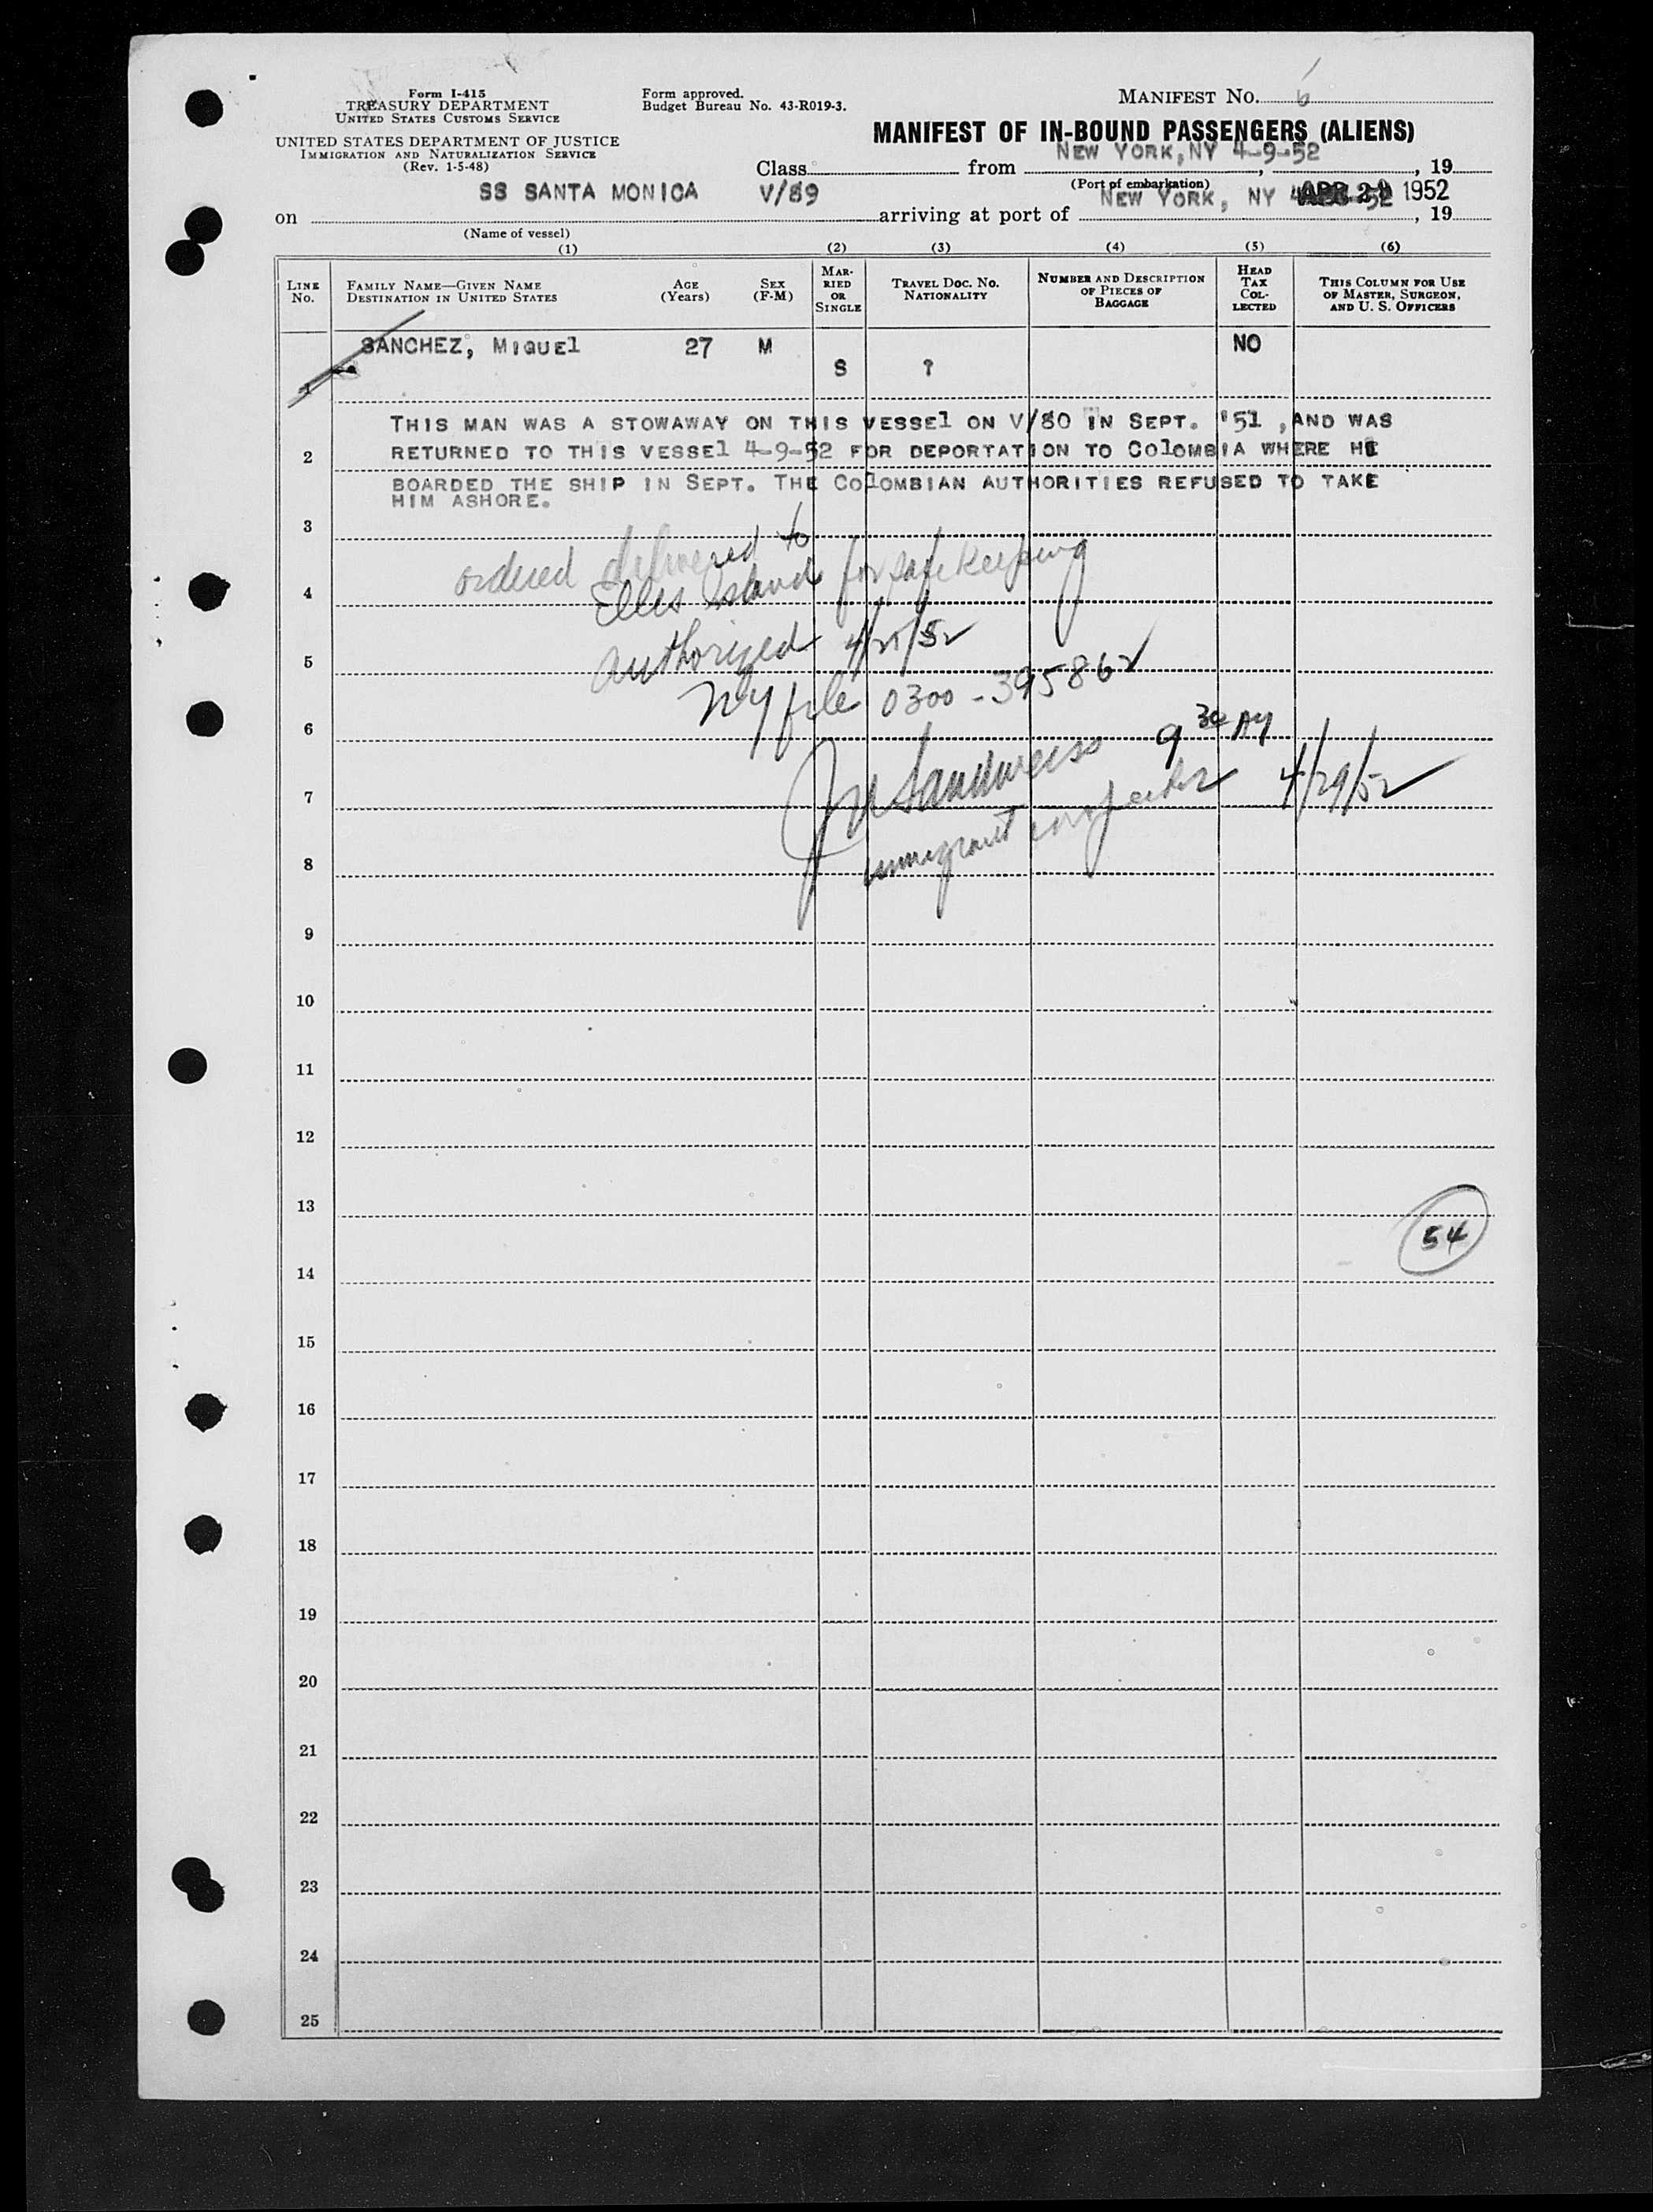 Form I-415
TREASURY DEPARTMENT
UNITED STATES CUSTOMS SERVICE
UNITED STATES DEPARTMENT OF JUSTICE
IMMIGRATION AND NATURALIZATION SERVICE
(Rev. 1-5-48)
Form approved.
Budget Bureau No. 43-R019-3.
MANIFEST No. 6
MANIFEST OF IN-BOUND PASSENGERS (ALIENS)
NEW YORK, NY 4-9-52
Class from , , 19
(Port of embarkation)
SS SANTA MONICA V/89 NEW YORK, NY APR 29 1952
on arriving at port of , 19
(Name of vessel)
(1) (2) (3) (4) (5) (6)
LINE No. FAMILY NAME—GIVEN NAME DESTINATION IN UNITED STATES AGE (Years) SEX (F-M) MARRIED OR SINGLE TRAVEL DOC. No. NATIONALITY NUMBER AND DESCRIPTION OF PIECES OF BAGGAGE HEAD TAX COLLECTED THIS COLUMN FOR USE OF MASTER, SURGEON, AND U. S. OFFICERS
SANCHEZ, MIGUEl 27 M NO
1 S ?
THIS MAN WAS A STOWAWAY ON THIS VESSEl ON V/80 IN SEPT. '51 ,AND WAS
2 RETURNED TO THIS VESSEl 4-9-52 FOR DEPORTATION TO COlOMBIA WHERE HE
BOARDED THE SHIP IN SEPT. THE COlOMBIAN AUTHORITIES REFUSED TO TAKE
HIM ASHORE.
3
ordered delivered to
4 Ellis Island for safe keeping
5 authorized 4/25/52
NY file 0300-395862
6 9 30 AM
7 Sandweiss 4/29/52
immigrant inspector
8
9
10
11
12
13
54
14
15
16
17
18
19
20
21
22
23
24
25